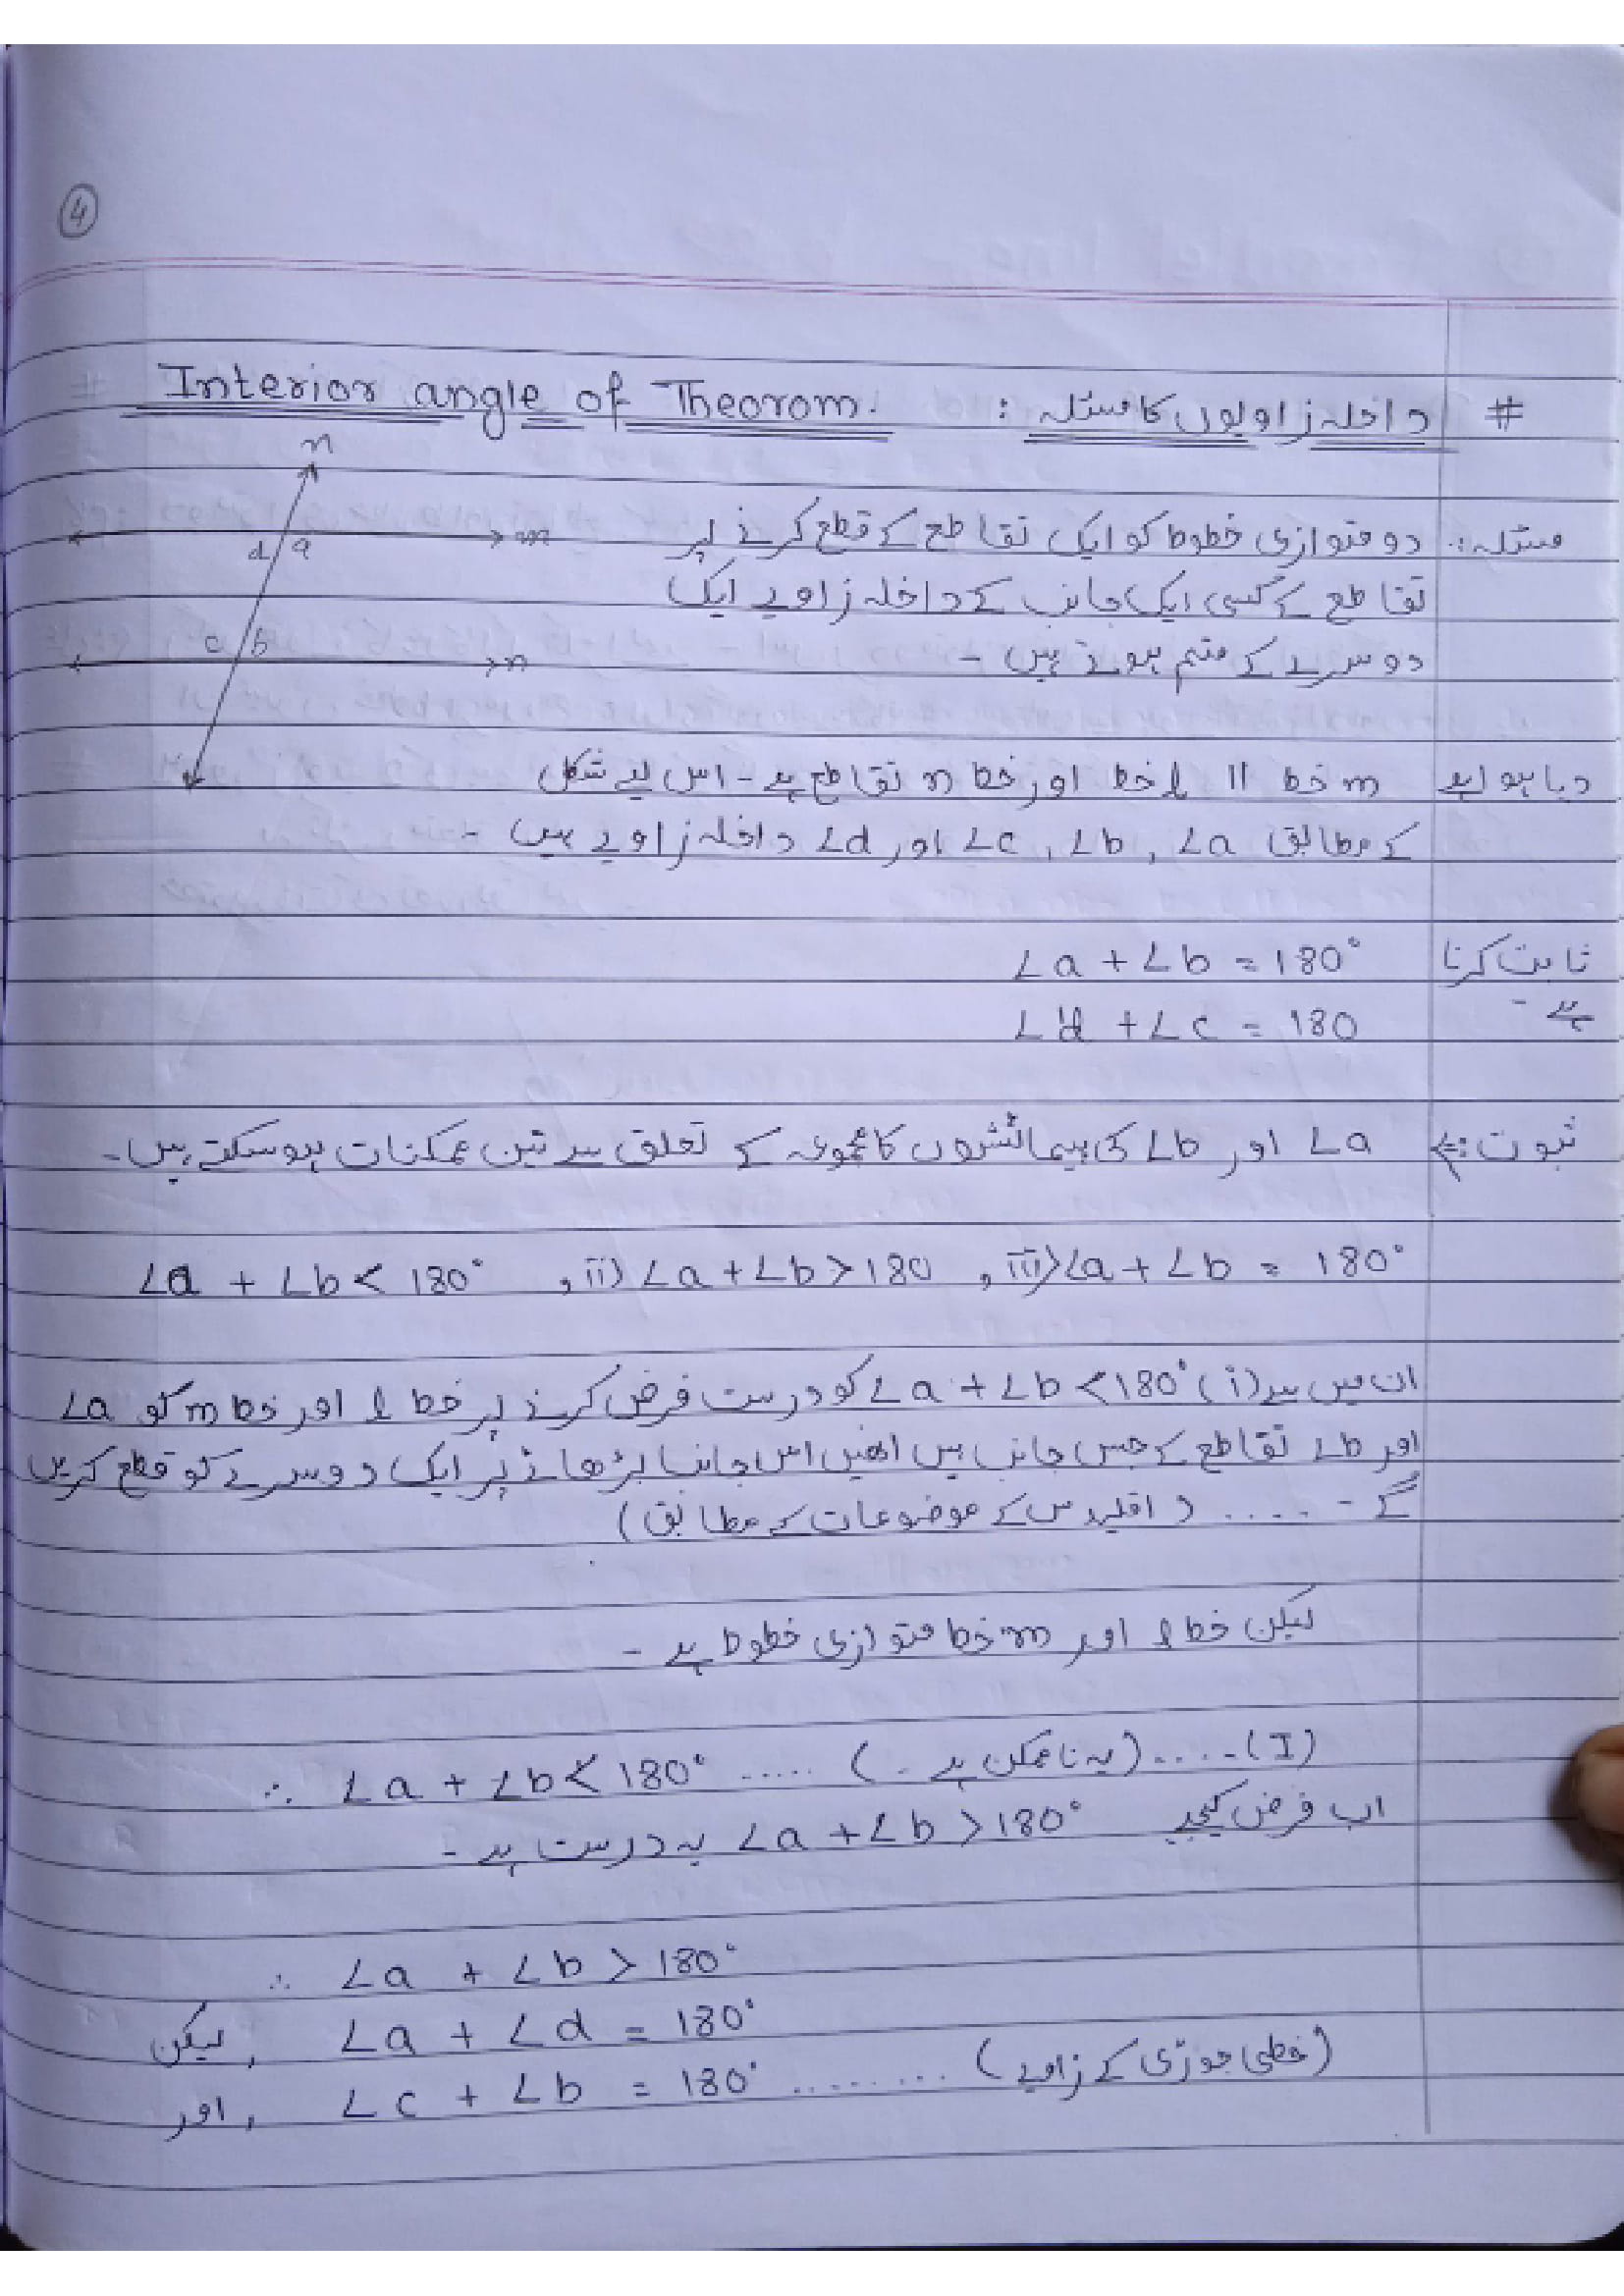 4
# داخلہ زاویوں کا مسئلہ : Interior angle of Theorom.
n
m
d a
c b
n
مسئلہ: دو متوازی خطوط کو ایک تقاطع کے قطع کرنے پر
تقاطع کے کسی ایک جانب کے داخلہ زاویے ایک
دوسرے کے متمم ہوتے ہیں -
دیا ہوا ہے m خط || l خط اور خط n تقاطع ہے - اس لیے شکل
کے مطابق ∠a , ∠b , ∠c اور ∠d داخلہ زاویے ہیں -
ثابت کرنا ∠a + ∠b = 180°
ہے - ∠d + ∠c = 180
ثبوت :⇒ ∠a اور ∠b کی پیمائشوں کا مجموعہ کے تعلق سے تین ممکنات ہو سکتے ہیں -
∠a + ∠b < 180° , ii) ∠a + ∠b > 180 , iii) ∠a + ∠b = 180°
ان میں سے (i) ∠a + ∠b < 180° کو درست فرض کرنے پر خط l اور خط m کو ∠a
اور ∠b تقاطع کے جس جانب ہیں انھیں اس جانب بڑھانے پر ایک دوسرے کو قطع کریں
گے - ..... (اقلیدس کے موضوعات کے مطابق)
لیکن خط l اور m خط متوازی خطوط ہے -
∴ ∠a + ∠b < 180° ..... (یہ ناممکن ہے -) ..... (I)
اب فرض کیجیے ∠a + ∠b > 180° یہ درست ہے -
∴ ∠a + ∠b > 180°
لیکن , ∠a + ∠d = 180°
اور , ∠c + ∠b = 180° ........ (خطی جوڑی کے زاویے)